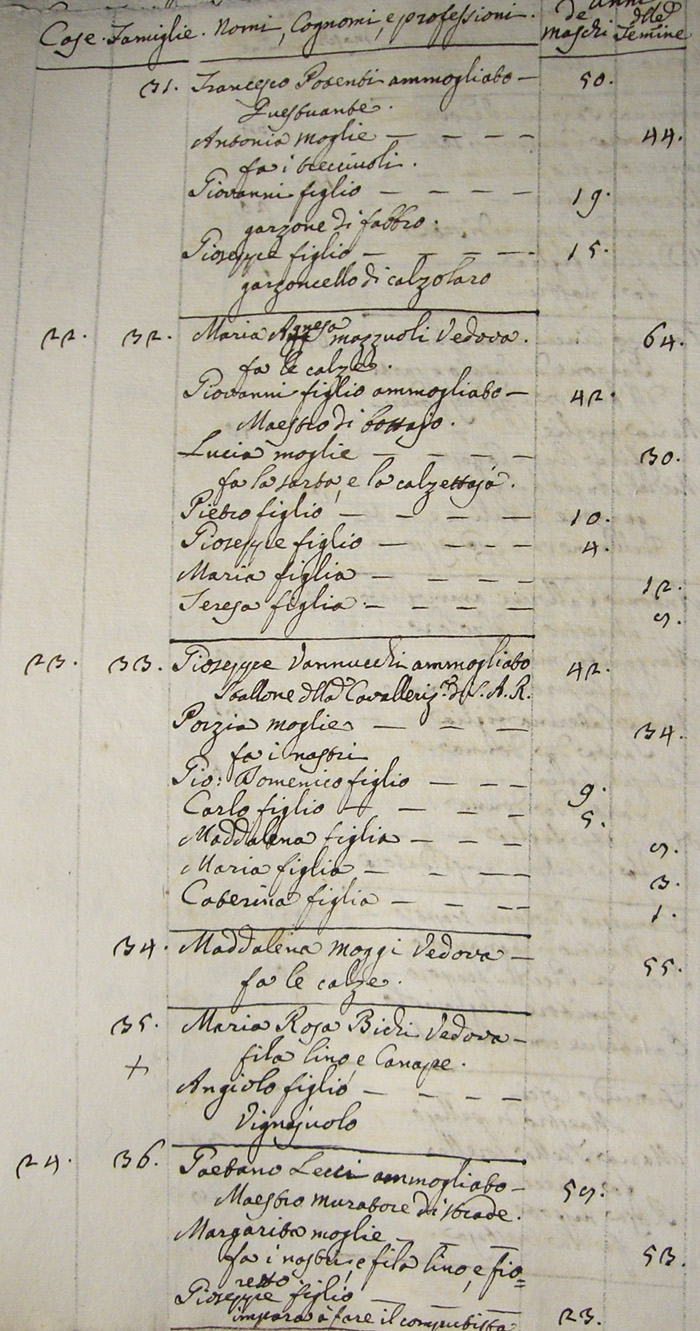 Case. Famiglie. Nomi, Cognomi, e professioni. Maschi Femine
31. Francesco Posenti ammogliato — 50.
Questuante.
Antonia moglie — — — — 44.
fa i trecciuoli.
Giovanni figlio — — — — 19.
garzone di fabbro.
Gioseppe figlio — — — — 15.
garzoncello di calzolaro
22. 32. Maria Agnesa Mazzuoli Vedova. 64.
fa le calze.
Giovanni figlio ammogliato — 42.
Maestro di bottajo.
Lucia moglie — — — — 30.
fa la sarta, e la calzettaja.
Pietro figlio — — — — 10.
Gioseppe figlio — — — — 4.
Maria figlia — — — — 12.
Teresa figlia — — — —
23. 33. Gioseppe Vannucchi ammogliato 42.
Stallone della Cavalleriz.ª di S. A. R.
Porzia moglie — — — 34.
fa i nastri
Gio: Domenico figlio — — — 9.
Carlo figlio — — — — 5.
Maddalena figlia — — —
Maria figlia — — — — 3.
Caterina figlia — — — 1.
34. Maddalena Moggi Vedova — 55.
fa le calze.
35. Maria Rosa Bichi Vedova —
fila lino, e Canape.
+ Angiolo figlio — — — —
Vignajuolo
24. 36. Gaetano Lecci ammogliato —
Maestro muratore di strade.
Margarita moglie — — — 53.
fa i nastri, e fila lino, e fio=
retto
Gioseppe figlio — — — 23.
impara a fare il computista